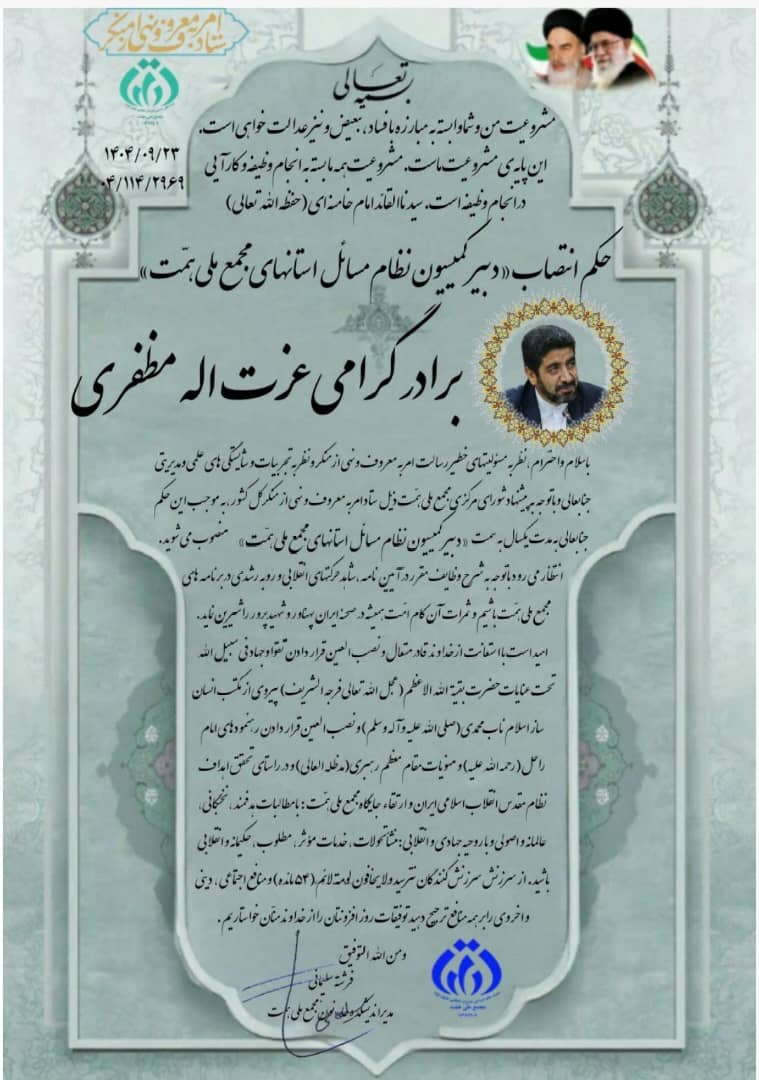 ستاد امر به معروف و نهی از منکر
بسمه تعالی
۱۴۰۴/۰۹/۲۳
۰۴/۱۱۴/۲۹۶۹
مشروعیت من و شما وابسته به مبارزه با فساد، تبعیض و نیز عدالت خواهی است.
این پایه ی مشروعیت ماست. مشروعیت همه ما بسته به انجام وظیفه و کارآیی
در انجام وظیفه است. سیدنا القائد امام خامنه ای (حفظه الله تعالی)
حکم انتصاب «دبیر کمیسیون نظام مسائل استانهای مجمع ملی همّت»
برادر گرامی عزت اله مظفری
باسلام واحترام، نظر به مسئولیتهای خطیر رسالت امر به معروف و نهی از منکر و نظر به تجربیات و شایستگی های علمی و مدیریتی
جنابعالی و با توجه به پیشنهاد شورای مرکزی مجمع ملی همّت ذیل ستاد امر به معروف و نهی از منکر کل کشور، به موجب این حکم
جنابعالی به مدت یکسال به سمت «دبیر کمیسیون نظام مسائل استانهای مجمع ملی همّت» منصوب می شوید.
انتظار می رود با توجه به شرح وظایف مقرر در آیین نامه، شاهد حرکتهای انقلابی و رو به رشدی در برنامه های
مجمع ملی همّت باشیم و ثمرات آن کام امّت همیشه در صحنه ایران پهناور و شهید پرور را شیرین نماید.
امید است با استعانت از خداوند قادر متعال و نصب العین قرار دادن تقوا و جهاد فی سبیل الله
تحت عنایات حضرت بقیة الله الاعظم (عجل الله تعالی فرجه الشریف) پیروی از مکتب انسان
ساز اسلام ناب محمدی (صلی الله علیه و آله و سلم) و نصب العین قرار دادن رهنمودهای امام
راحل (رحمه الله علیه) و منویات مقام معظم رهبری (مدظله العالی) و در راستای تحقق اهداف
نظام مقدس انقلاب اسلامی ایران و ارتقاء جایگاه مجمع ملی همّت؛ با مطالبات هدفمند، نخبگانی،
عالمانه و اصولی و با روحیه جهادی و انقلابی؛ منشأ تحولات، خدمات مؤثر، مطلوب، حکیمانه و انقلابی
باشید. از سرزنش سرزنش کنندگان نترسید ولا یخافون لومة لائم (۵۴ مائده) و منافع اجتماعی، دینی
و اخروی را بر همه منافع ترجیح دهید توفیقات روز افزونتان را از خداوند منّان خواستاریم.
ومن الله التوفیق
فرشته سلیمانی
مدیر اندیشکده بانوان مجمع ملی همّت
مجمع ملی همت